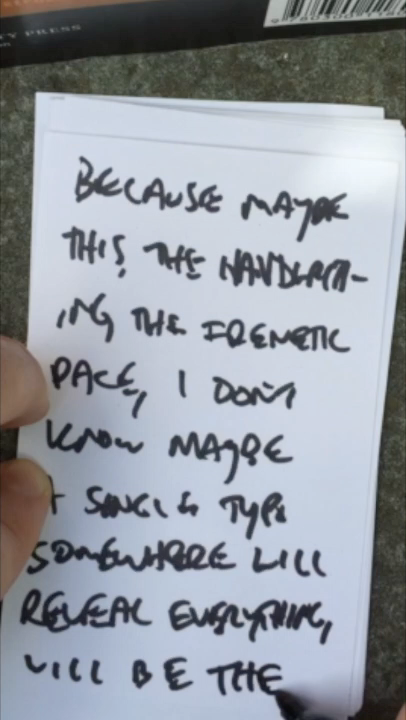 Y PRESS
BECAUSE MAYBE
THIS, THE HANDWRIT-
ING, THE FRENETIC
PACE, I DON'T
KNOW MAYBE
A SINGLE TYPO
SOMEWHERE WILL
REVEAL EVERYTHING,
WILL BE THE